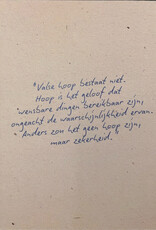 "Valse hoop bestaat niet.
Hoop is het geloof dat
wensbare dingen bereikbaar zijn,
ongeacht de waarschijnlijkheid ervan.
"Anders zou het geen hoop zijn,
maar zekerheid."